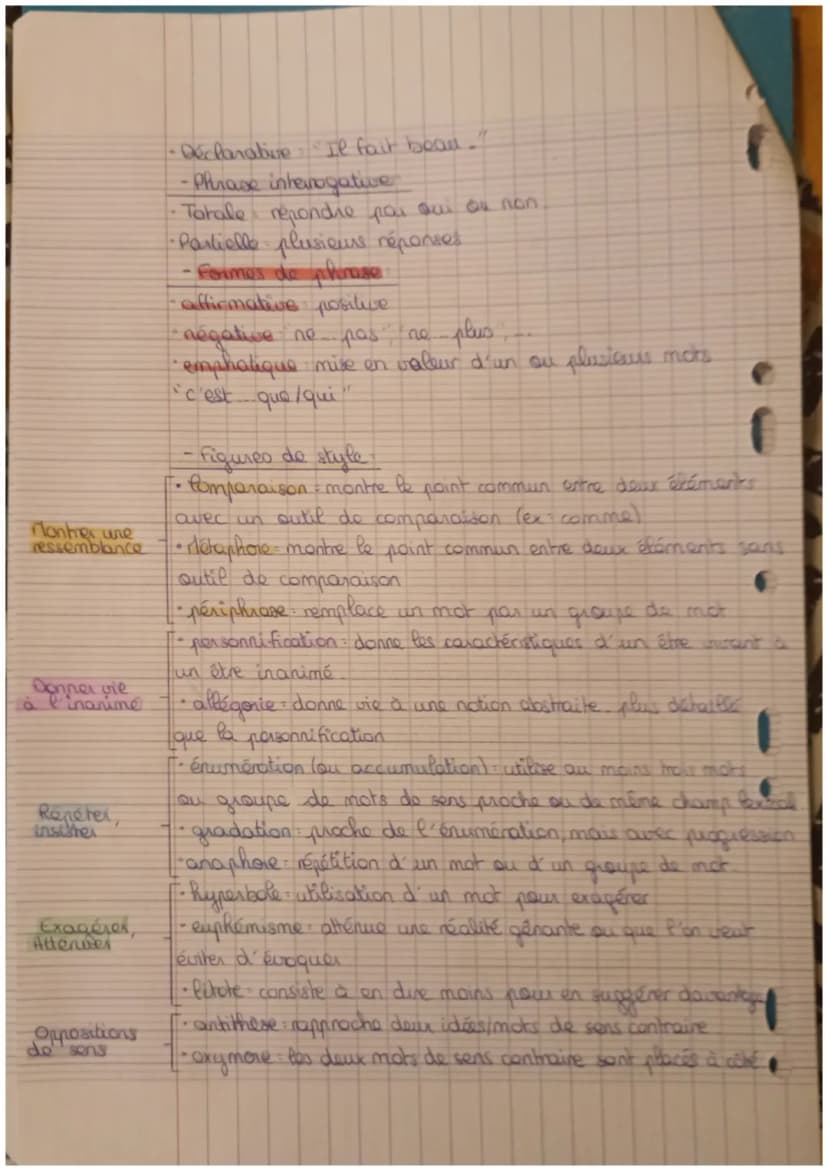 · Déclarative : "Il fait beau."
- Phrase interrogative
· Totale : répondre par oui ou non
· Partielle : plusieurs réponses
- Formes de phrase :
· affirmative : positive
· négative : ne ... pas, ne ... plus, ...
· emphatique : mise en valeur d'un ou plusieurs mots
"c'est ... que/qui"
- Figures de style :
· Comparaison = montre le point commun entre deux éléments
avec un outil de comparaison (ex : comme)
Montrer une
ressemblance
· Métaphore = montre le point commun entre deux éléments sans
outil de comparaison
· périphrase = remplace un mot par un groupe de mot
· personnification = donne les caractéristiques d'un être vivant à
un être inanimé.
Donner vie
à l'inanimé
· allégorie = donne vie à une notion abstraite. plus détaillée
que la personnification
· énumération (ou accumulation) = utilise au moins trois mots
ou groupe de mots de sens proche ou de même champ lexical
Répéter,
insister
· gradation = proche de l'énumération, mais avec progression
· anaphore = répétition d'un mot ou d'un groupe de mot.
· hyperbole = utilisation d'un mot pour exagérer
Exagérer,
Atténuer
- euphémisme = atténue une réalité gênante ou que l'on veut
éviter d'évoquer
· litote = consiste à en dire moins pour en suggérer davantage
Oppositions
de sens
· antithèse = rapproche deux idées/mots de sens contraire
· oxymore = les deux mots de sens contraire sont placés à côté